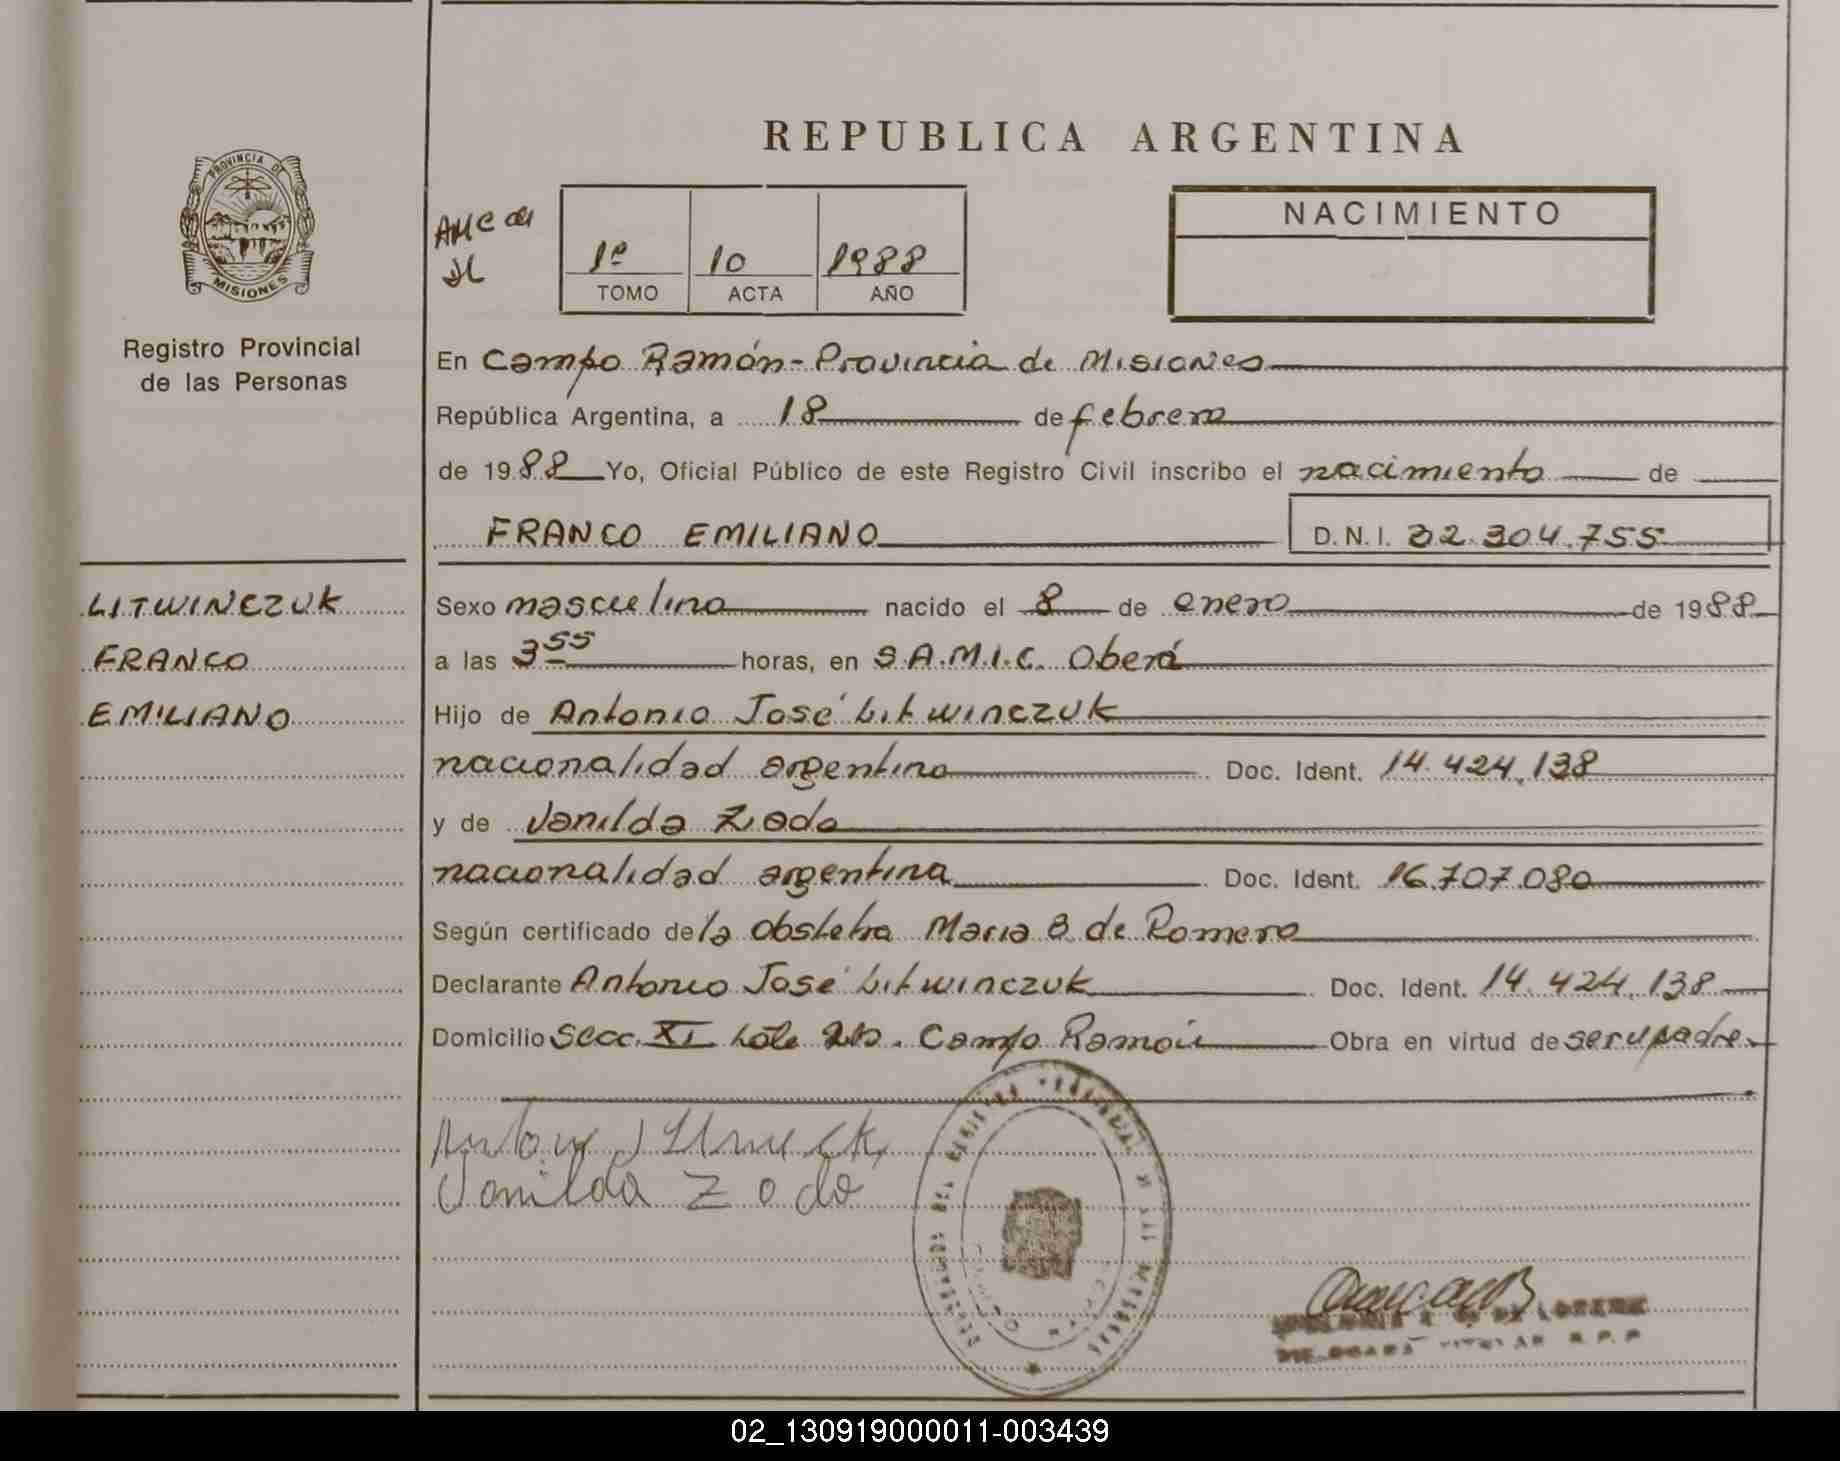 REPUBLICA ARGENTINA
PROVINCIA DE
MISIONES
Registro Provincial
de las Personas
1º 10 1988
TOMO ACTA AÑO
NACIMIENTO
En Campo Ramón - Provincia de Misiones
República Argentina, a 18 de febrero
de 1988 Yo, Oficial Público de este Registro Civil inscribo el nacimiento de
FRANCO EMILIANO D.N.I. 32.304.755
LITWINCZUK
FRANCO
EMILIANO
Sexo masculino nacido el 8 de enero de 1988
a las 3 55 horas, en S.A.M.I.C. Oberá
Hijo de Antonio José Litwinczuk
nacionalidad argentino Doc. Ident. 14.424.138
y de
nacionalidad argentina Doc. Ident. 16.707.080
Según certificado de la obstetra Maria B. de Romero
Declarante Antonio José Litwinczuk Doc. Ident. 14.424.138
Domicilio Secc. XI Lote Campo Ramón Obra en virtud de ser u padre
02_130919000011-003439